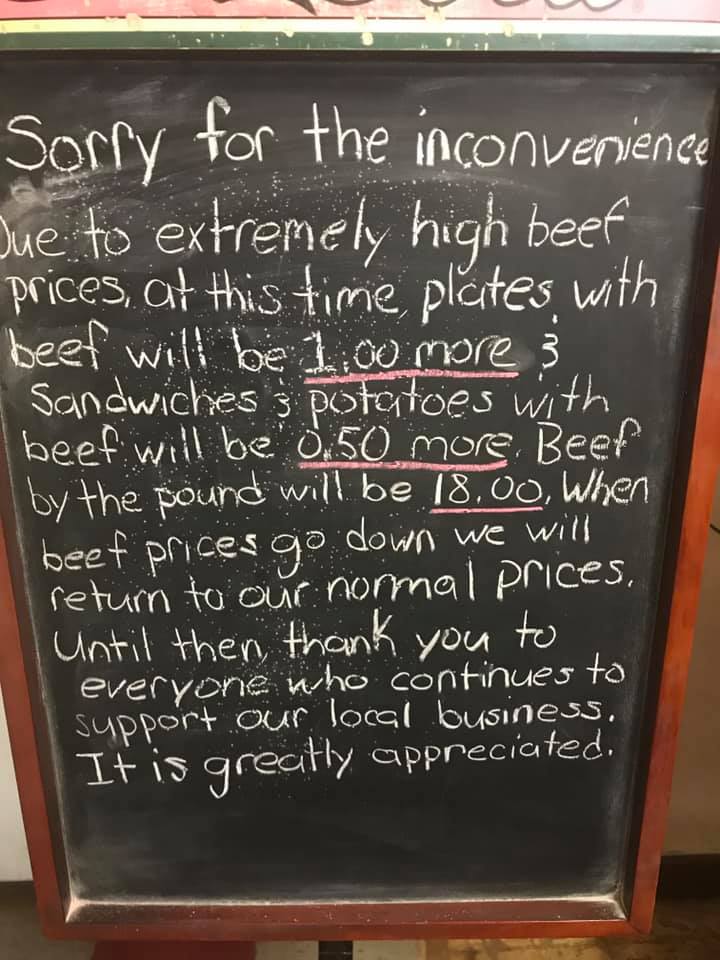 Sorry for the inconvenience
Due to extremely high beef
prices, at this time, plates with
beef will be 1.00 more &
Sandwiches & potatoes with
beef will be 0.50 more. Beef
by the pound will be 18.00. When
beef prices go down we will
return to our normal prices.
Until then, thank you to
everyone who continues to
support our local business.
It is greatly appreciated.